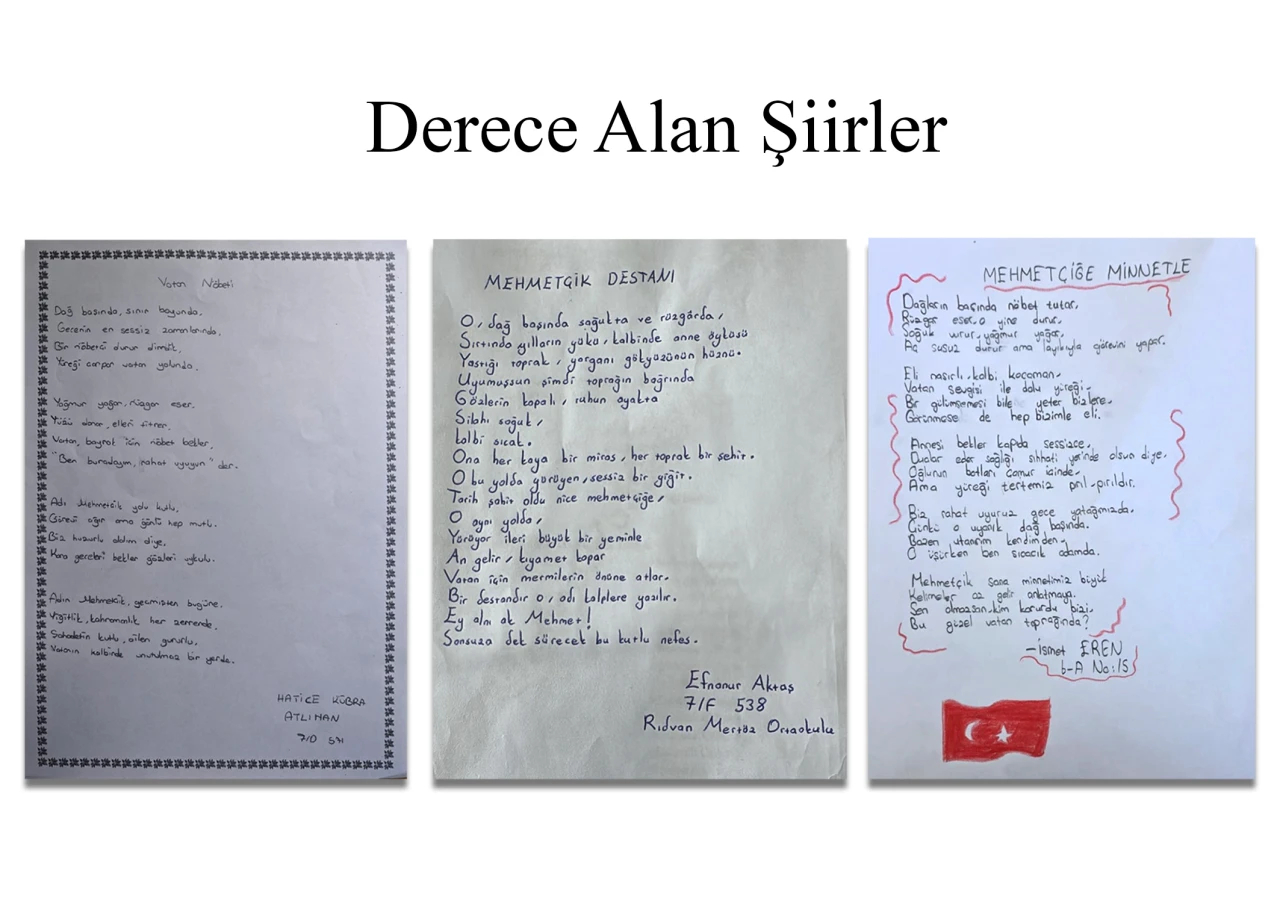 Derece Alan Şiirler
Vatan Nöbeti
Dağ başında, sınır boyunda,
Gecenin en sessiz zamanlarında,
Bir nöbetçi durur dimdik,
Yüreği çarpar vatan yolunda.
Yağmur yağar, rüzgar eser.
Yüzü donar, elleri titrer.
Vatan, bayrak için nöbet bekler,
"Ben buradayım, rahat uyuyun" der.
Adı Mehmetcik yolu kutlu,
Görevi ağır ama gönlü hep mutlu.
Biz huzurlu olalım diye,
Kara geceleri bekler gözleri uykulu.
Adın Mehmetcik, geçmişten bugüne.
Yiğitlik, kahramanlık her zerrende.
Şahadetin kutlu, ailen gururlu,
Vatanın kalbinde unutulmaz bir yerde.
HATİCE KÜBRA
ATLIHAN
7/D 571
MEHMETÇİK DESTANI
O, dağ başında soğukta ve rüzgârda,
Sırtında yılların yükü, kalbinde anne öyküsü
Yastığı toprak, yorganı gökyüzünün hüznü.
Uyumuşsun şimdi toprağın bağrında
Gözlerin kapalı, ruhun ayakta
Silahı soğuk,
kalbi sıcak.
Ona her kaya bir miras, her toprak bir şehir.
O bu yolda yürüyen, sessiz bir yiğit.
Tarih şahit oldu nice mehmetçiğe,
O aynı yolda,
Yürüyor ileri büyük bir yeminle
An gelir, kıyamet kopar
Vatan için mermilerin önüne atlar.
Bir destandır o, adı kalplere yazılır.
Ey alnı ak Mehmet!
Sonsuza dek sürecek bu kutlu nefes.
Efnanur Aktaş
7/F 538
Rıdvan Mertöz Ortaokulu
MEHMETCİĞE MİNNETLE
Dağların başında nöbet tutar,
Rüzgar eser, o yine durur,
Soğuk vurur, yağmur yağar,
Aç susuz durur ama layıkıyla görevini yapar.
Eli nasırlı, kalbi kocaman,
Vatan sevgisi ile dolu yüreği,
Bir gülümsemesi bile yeter bizlere,
Görünmese de hep bizimle eli.
Annesi bekler kapıda sessizce,
Dualar eder sağlığı sıhhati yerinde olsun diye.
Oğlunun botları çamur içinde,
Ama yüreği tertemiz pırıl-pırıldır.
Biz rahat uyuruz gece yatağımızda,
Çünkü o uyanık dağ başında.
Bazen utanırım kendimden,
O üşürken ben sıcacık odamda.
Mehmetçik sana minnetimiz büyük
Kelimeler az gelir anlatmaya.
Sen olmazsan, kim korurdu bizi,
Bu güzel vatan toprağında?
-İsmet EREN
6-A No:15